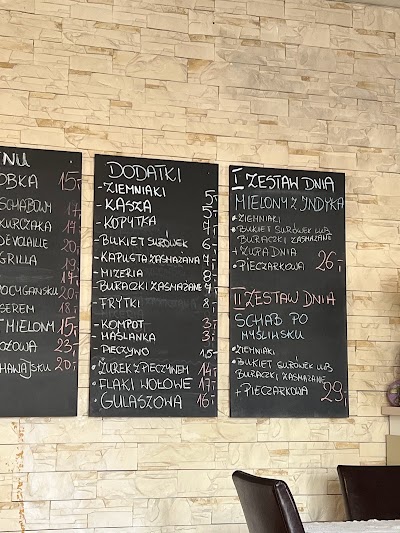 NU
OBKA 15,-
SCHABOWY 17,-
KURCZAKA 14,-
DEVOLAILLE 20,-
GRILLA 19,-
17,-
POCYGAŃSKU 20,-
SEREM 18,-
T MIELONY 15,-
ŻOWA 23,-
HAWAJSKU 20,-
DODATKI
- ZIEMNIAKI 5,-
- KASZA 5,-
- KOPYTKA 7,-
- BUKIET SURÓWEK 6,-
- KAPUSTA ZASMAŻANA 7,-
- MIZERIA 8,-
- BURACZKI ZASMAŻANE 7,-
- FRYTKI 8,-
- KOMPOT 3,-
- MAŚLANKA 3,-
- PIECZYWO 1,5,-
• ŻUREK Z PIECZYWEM 14,-
• FLAKI WOŁOWE 17,-
• GULASZOWA 16,-
I ZESTAW DNIA
MIELONY Z INDYKA
• ZIEMNIAKI
• BUKIET SURÓWEK LUB
BURACZKI ZASMAŻANE
+ ZUPA DNIA
• PIECZARKOWA 26,-
II ZESTAW DNIA
SCHAB PO
MYŚLIWSKU
• ZIEMNIAKI
• BUKIET SURÓWEK LUB
BURACZKI ZASMAŻANE
+ PIECZARKOWA 29,-